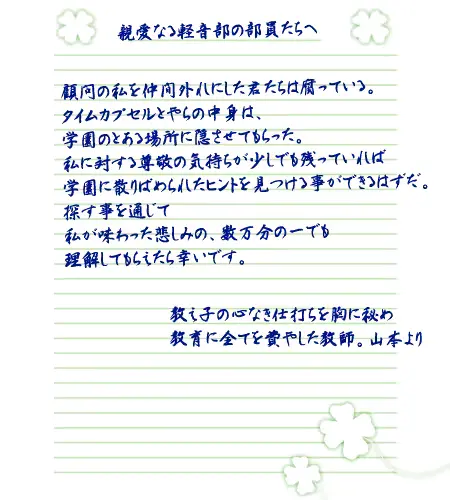 親愛なる軽音部の部員たちへ
顧問の私を仲間外れにした君たちは腐っている。
タイムカプセルとやらの中身は、
学園のとある場所に隠させてもらった。
私に対する尊敬の気持ちが少しでも残っていれば
学園に散りばめられたヒントを見つける事ができるはずだ。
探す事を通じて
私が味わった悲しみの、数万分の一でも
理解してもらえたら幸いです。
教え子の心なき仕打ちを胸に秘め
教育に全てを費やした教師。山本より